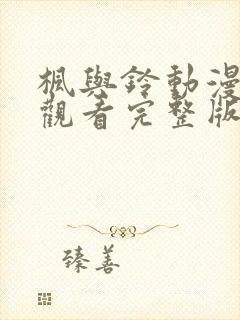 楓與鈴動漫
觀看完整版
臻善